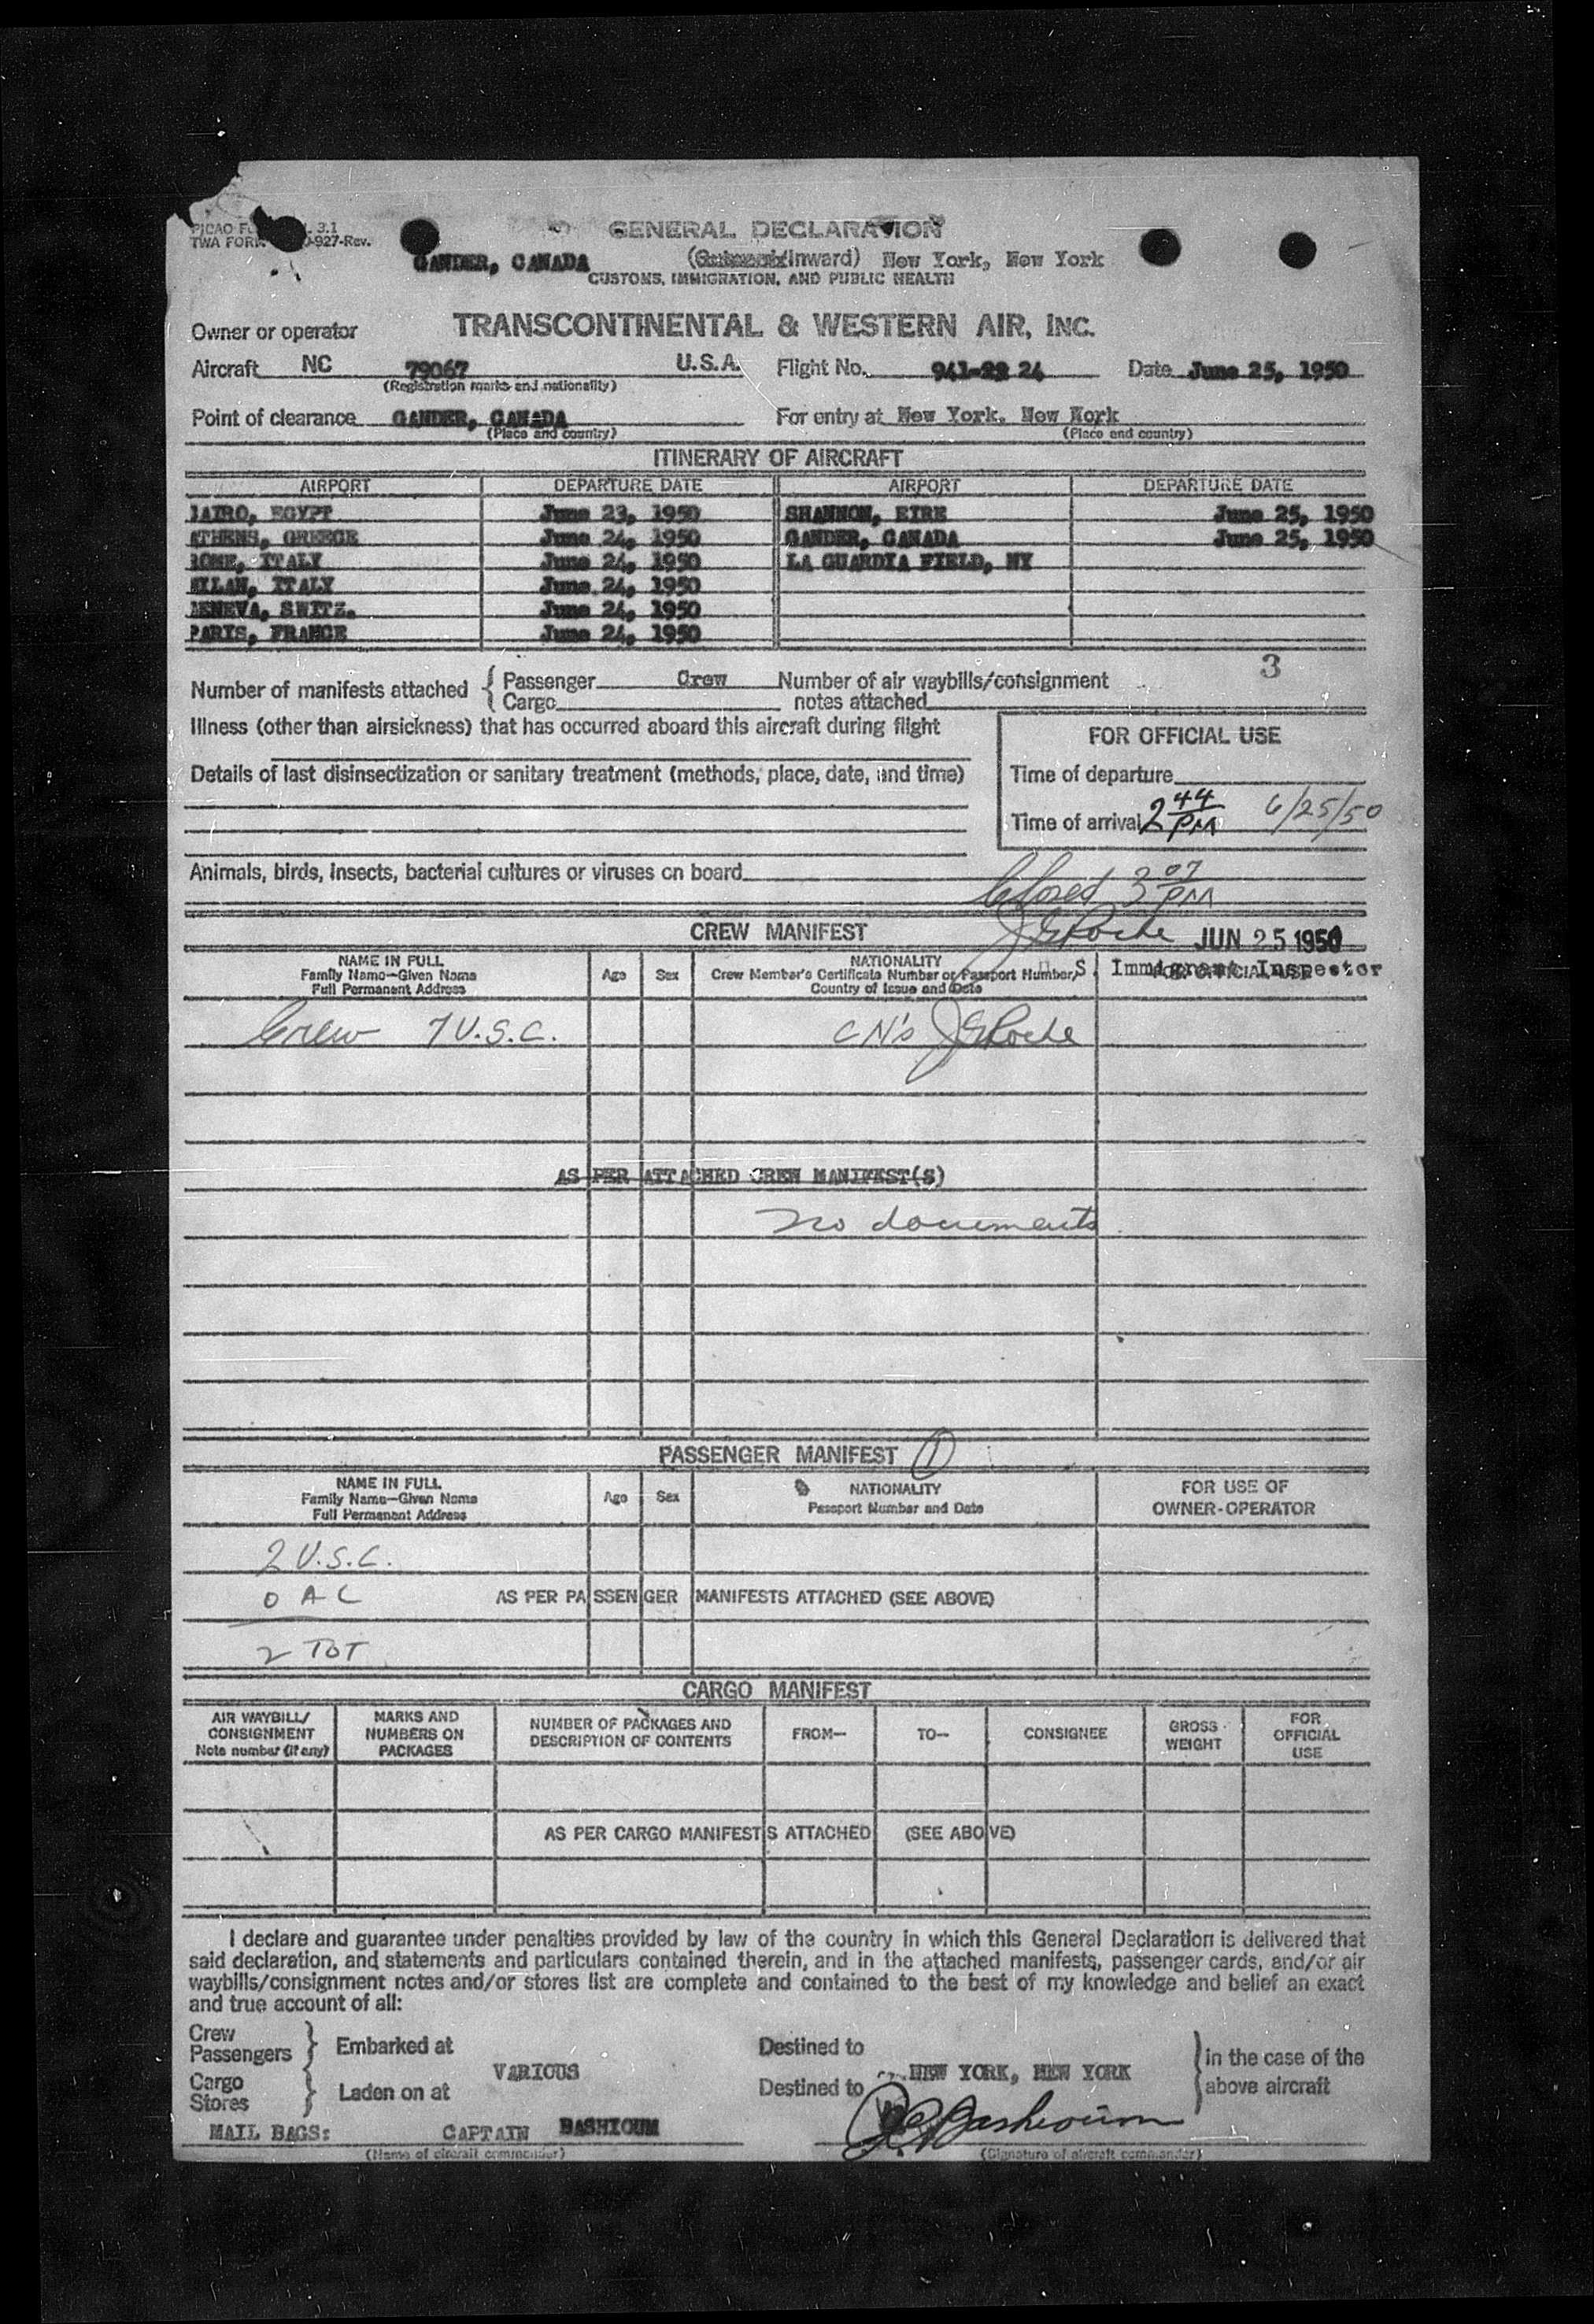 PICAO FO 3.1
TWA FORM -927-Rev.
GENERAL DECLARATION
GANDER, CANADA (Outward/Inward) New York, New York
CUSTOMS, IMMIGRATION, AND PUBLIC HEALTH
Owner or operator TRANSCONTINENTAL & WESTERN AIR, INC.
Aircraft NC 79067 U.S.A. Flight No. 941-22 24 Date June 25, 1950
(Registration marks and nationality)
Point of clearance GANDER, CANADA For entry at New York, New York
(Place and country) (Place and country)
ITINERARY OF AIRCRAFT
AIRPORT DEPARTURE DATE AIRPORT DEPARTURE DATE
CAIRO, EGYPT June 23, 1950 SHANNON, EIRE June 25, 1950
ATHENS, GREECE June 24, 1950 GANDER, CANADA June 25, 1950
ROME, ITALY June 24, 1950 LA GUARDIA FIELD, NY
MILAN, ITALY June 24, 1950
GENEVA, SWITZ. June 24, 1950
PARIS, FRANCE June 24, 1950
3
Number of manifests attached { Passenger Crew Number of air waybills/consignment
Cargo notes attached
Illness (other than airsickness) that has occurred aboard this aircraft during flight
FOR OFFICIAL USE
Details of last disinsectization or sanitary treatment (methods, place, date, and time)
Time of departure
Time of arrival 2 44 PM 6/25/50
Animals, birds, insects, bacterial cultures or viruses on board
Closed 3 07 PM
CREW MANIFEST JE Roche JUN 25 1950
NAME IN FULL
Family Name—Given Name
Full Permanent Address
Age Sex
NATIONALITY
Crew Member's Certificate Number or Passport Number,
Country of Issue and Date
S. Immigrant Inspector
FOR OFFICIAL USE
Crew 7 U.S.C. CN's JE Roche
AS PER ATTACHED CREW MANIFEST(S)
No documents
PASSENGER MANIFEST 1
NAME IN FULL
Family Name—Given Name
Full Permanent Address
Age Sex
NATIONALITY
Passport Number and Date
FOR USE OF
OWNER-OPERATOR
2 U.S.C.
0 A C AS PER PASSENGER MANIFESTS ATTACHED (SEE ABOVE)
2 TOT
CARGO MANIFEST
AIR WAYBILL/
CONSIGNMENT
Note number (if any)
MARKS AND
NUMBERS ON
PACKAGES
NUMBER OF PACKAGES AND
DESCRIPTION OF CONTENTS
FROM—
TO—
CONSIGNEE
GROSS
WEIGHT
FOR
OFFICIAL
USE
AS PER CARGO MANIFESTS ATTACHED (SEE ABOVE)
I declare and guarantee under penalties provided by law of the country in which this General Declaration is delivered that
said declaration, and statements and particulars contained therein, and in the attached manifests, passenger cards, and/or air
waybills/consignment notes and/or stores list are complete and contained to the best of my knowledge and belief an exact
and true account of all:
Crew
Passengers } Embarked at Destined to
VARIOUS NEW YORK, NEW YORK
Cargo
Stores } Laden on at Destined to
in the case of the
above aircraft
MAIL BAGS: CAPTAIN BASHIOUM Bashioum
(Name of aircraft commander) (Signature of aircraft commander)